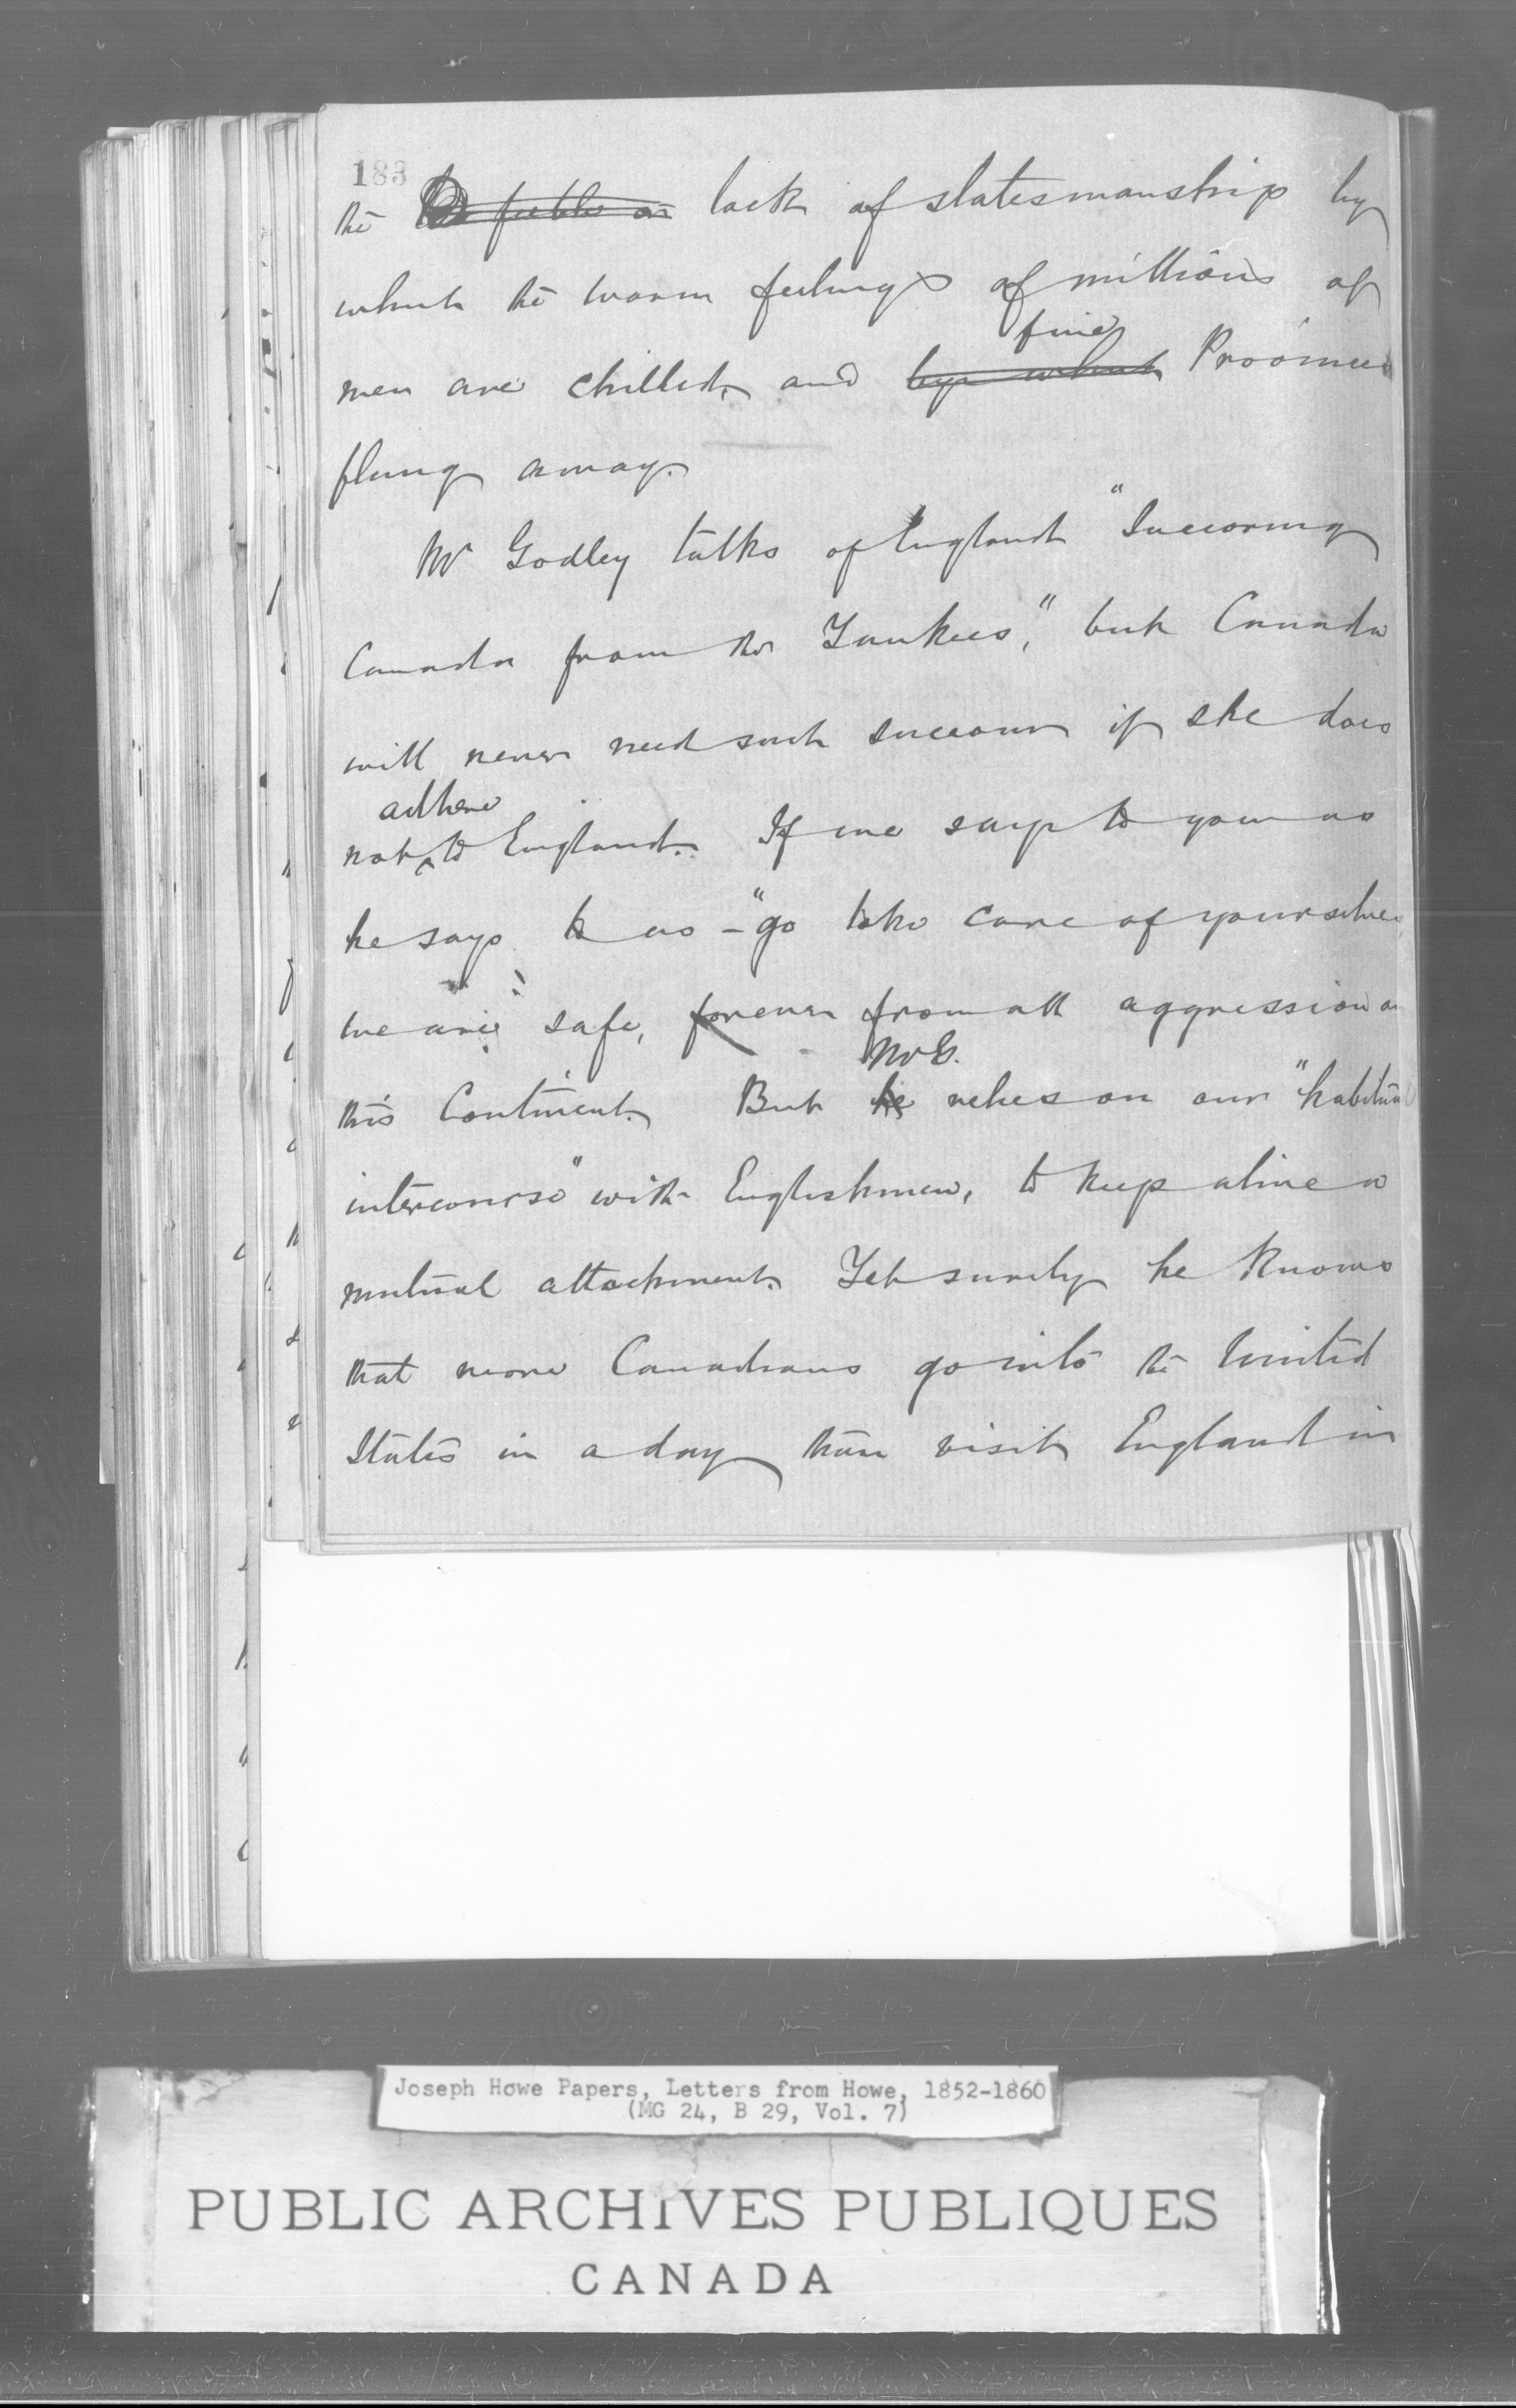 183
the feeble or lack of statesmanship by
which the warm feelings of millions of
fine
men are chilled, and by which Provinces
flung away.
Mr Godley talks of England "Succoring
Canada from the Yankees," but Canada
will never need such succour if she does
adhere
not to England. If we say to you as
he says to us - "go take care of yourselves,
we are safe, forever from all aggression on
Mr G.
this Continent. But he relies on our "habitual
intercourse" with Englishmen, to keep alive a
mutual attachment. Yet surely he knows
that more Canadians go into the United
States in a day than visit England in
Joseph Howe Papers, Letters from Howe, 1852-1860
(MG 24, B 29, Vol. 7)
PUBLIC ARCHIVES PUBLIQUES
CANADA